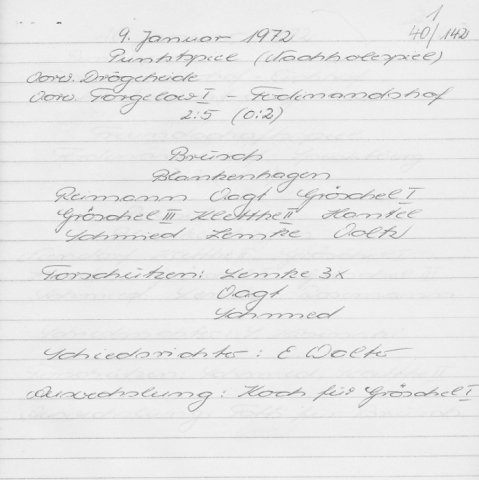 1
9. Januar 1972 40/142
Punktspiel (Nachholespiel)
Vorw. Drögeheide
Vorw. Torgelow I - Ferdinandshof
2:5 (0:2)
Brüsch
Blankenhagen
Reimann Vagt Gröschel I
Gröschel III Kletthe II Hantel
Schmied Lemke Voltz
Torschützen: Lemke 3x
Vagt
Schmied
Schiedsrichter: E Wolter
Auswechslung: Koch für Gröschel I